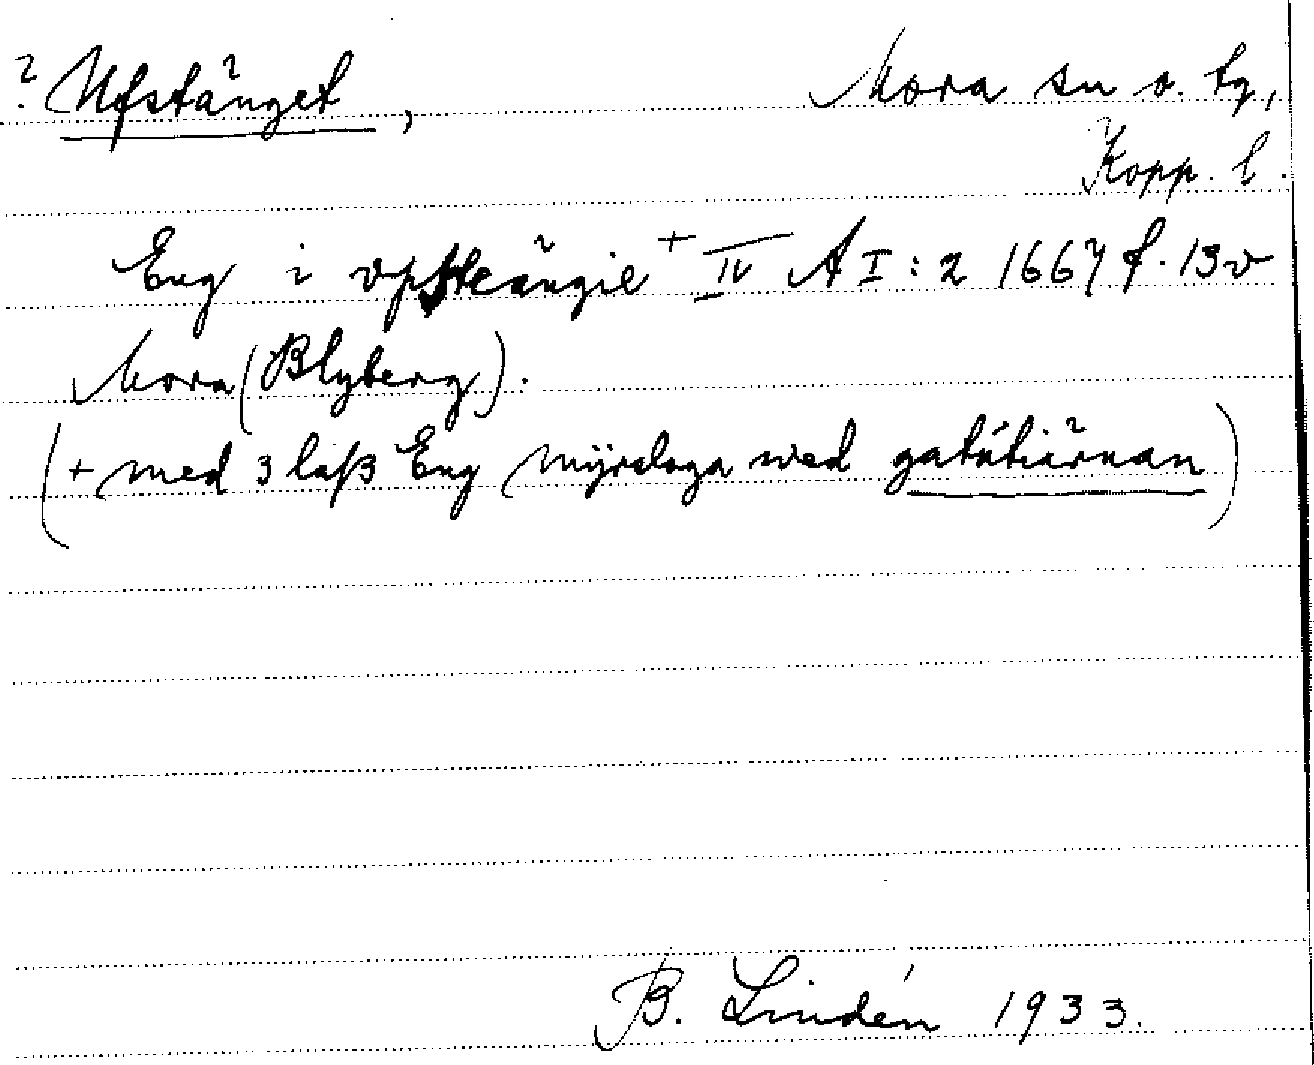 ? Ufstänget, Mora sn o. tg,
Kopp. l.
Eng i vpsteängie + IV A I: 2 1667 f. 13v
Mora (Blyberg).
(+ med 3 laß Eng mÿrsloga wed gatútiärnan)
B. Lindén 1933.